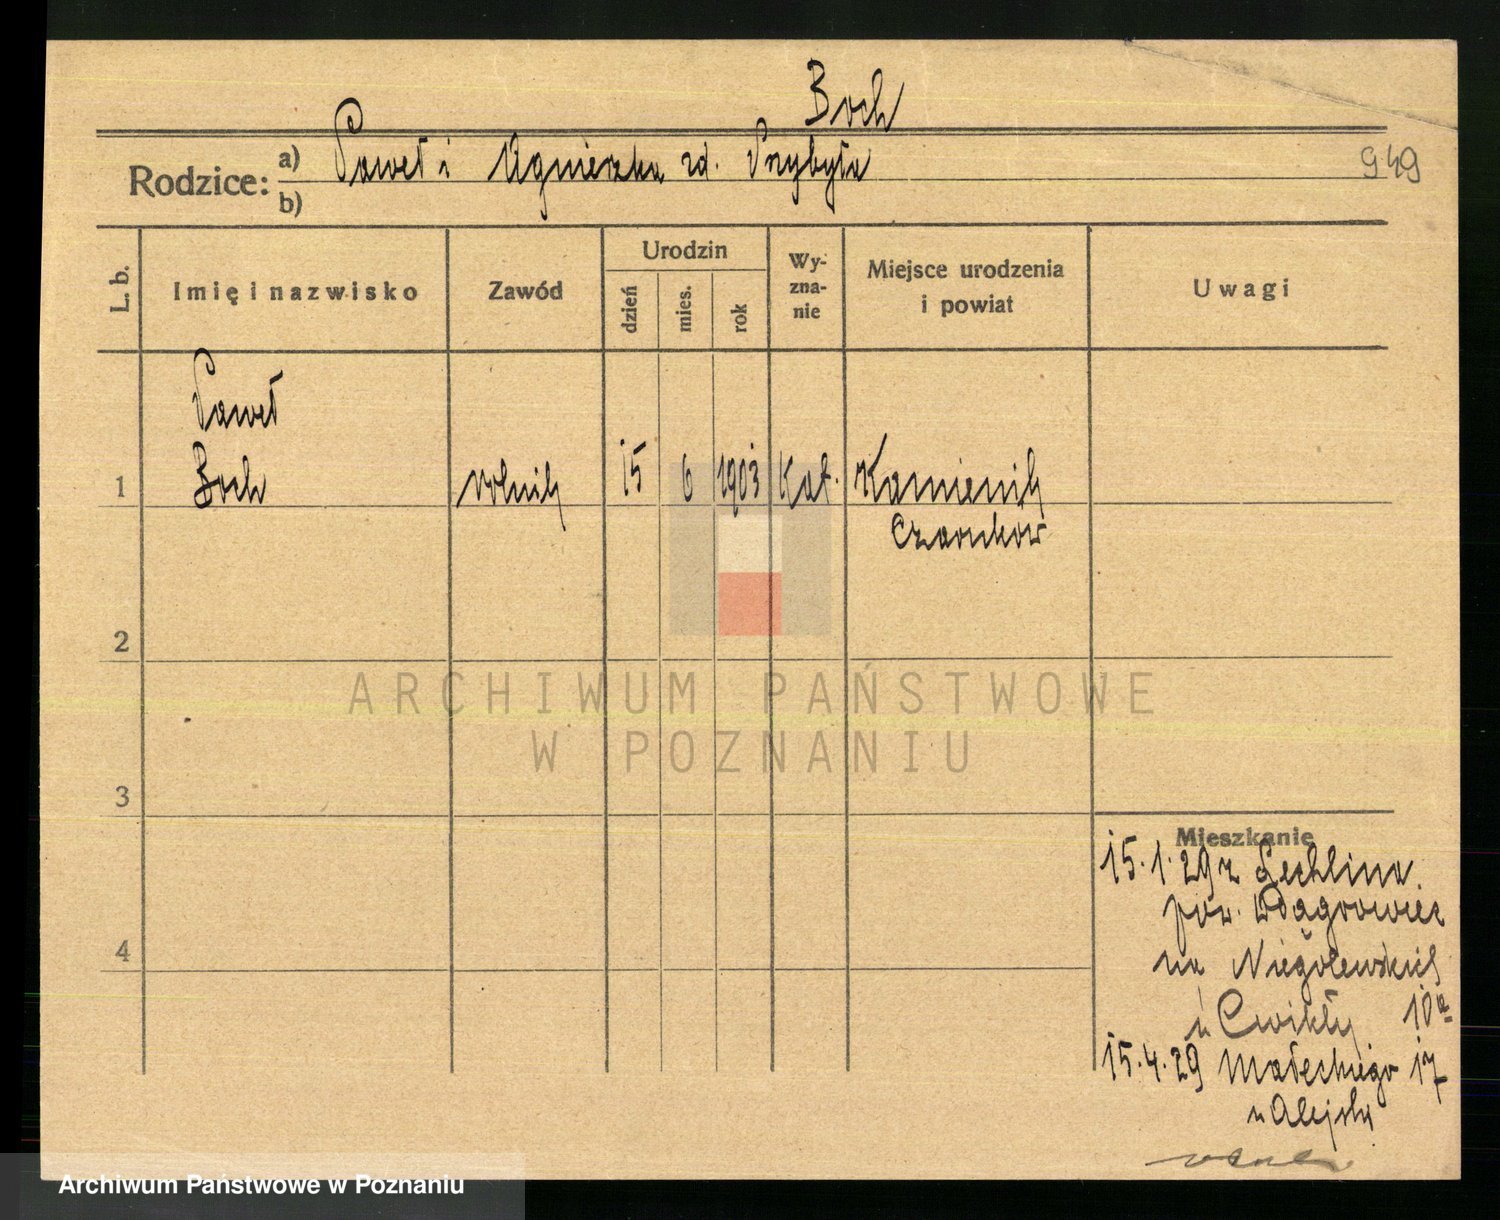 Boch
Rodzice: a) Paweł i Agnieszka zd. Przybyła
949
b)
L. b. Imię i nazwisko Zawód Urodzin Wy-zna-nie Miejsce urodzenia i powiat Uwagi
dzień mies. rok
Paweł
1 Boch rolnik 15 6 1903 Kat. Kamienik
Czarnków
2
ARCHIWUM PAŃSTWOWE
W POZNANIU
3
Mieszkanie
15.1.29 z Lechlina
pow. Wągrowiec
4
na Niegolewskich
10a
u Ćwikły
15.4.29 Małeckiego 17
u
Archiwum Państwowe w Poznaniu